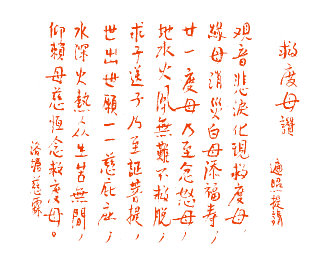 救度母讚
遍照提語
觀音悲淚化現救度母，
綠母消災白母添福壽，
廿一度母乃至忿怒母，
地水火風無難不救脫，
求子送子乃至証菩提，
世出世願一一慈庇亟，
水深火熱众生苦無間，
仰賴母慈恆念救度母。
洛講慈霖